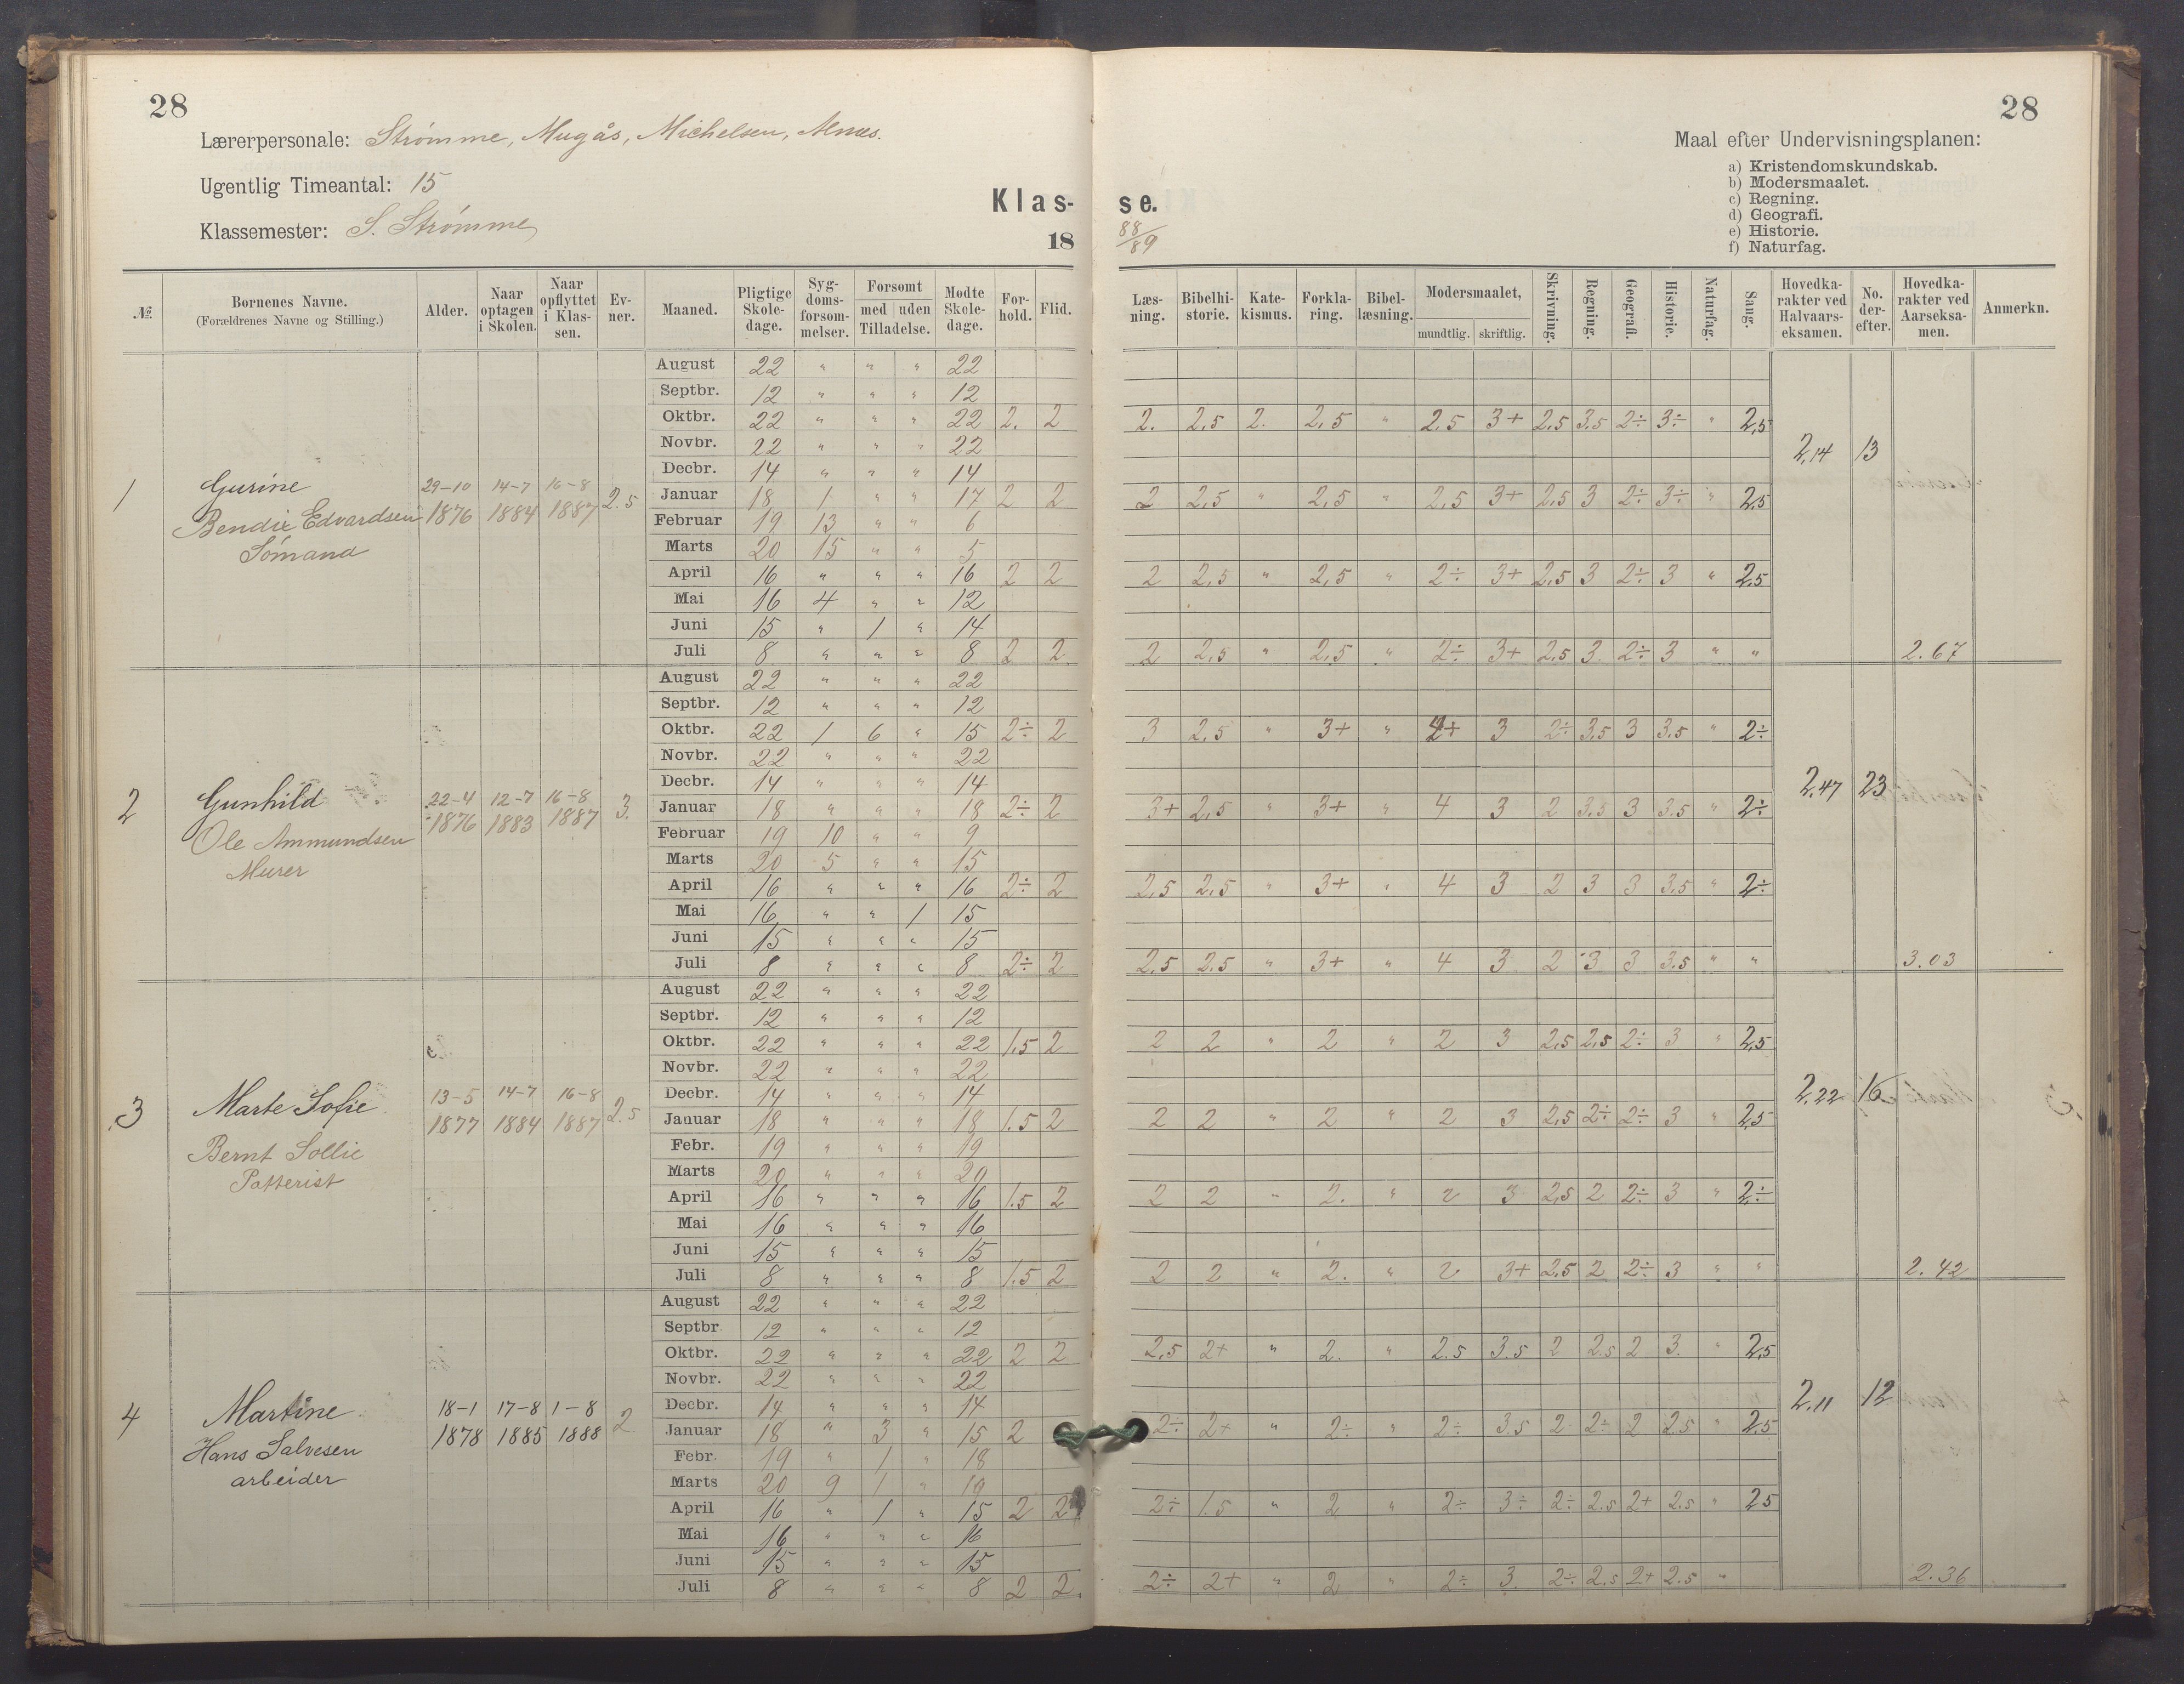 28
Lærerpersonale: Strømme, Mugås, Michelsen,
Ugentlig Timeantal: 15
Klassemester: S. Strømme
Klas-
18
№.
Børnenes Navne. (Forældrenes Navne og Stilling.)
Alder.
Naar optagen i Skolen.
Naar opflyttet i Klas- sen.
Ev- ner.
Maaned.
Pligtige Skole- dage.
Syg- doms- forsøm- melser.
Forsømt med | uden Tilladelse.
Mødte Skole- dage.
For- hold.
Flid.
1
Gurine
Bendix Edvardsen
Sömand
29-10 1876
14-7 1884
16-8 1887
2.5
August 22 " " " 22
Septbr. 12 " " " 12
Oktbr. 22 " " " 22 2. 2
Novbr. 22 " " " 22
Decbr. 14 " " " 14
Januar 18 1 " " 17 2 2
Februar 19 13 " " 6
Marts 20 15 " " 5
April 16 " " " 16 2 2
Mai 16 4 " " 12
Juni 15 " 1 " 14
Juli 8 " " " 8 2 2
2
Gunhild
Ole Ammundsen
Murer
22-4 1876
12-7 1883
16-8 1887
3.
August 22 " " " 22
Septbr. 12 " " " 12
Oktbr. 22 1 6 " 15 2÷ 2
Novbr. 22 " " " 22
Decbr. 14 " " " 14
Januar 18 " " " 18 2÷ 2
Februar 19 10 " " 9
Marts 20 5 " " 15
April 16 " " " 16 2÷ 2
Mai 16 " " 1 15
Juni 15 " " " 15
Juli 8 " " " 8 2÷ 2
3
Marte Sofie
Bernt Sollie
13-5 1877
14-7 1884
16-8 1887
2.5
August 22 " " " 22
Septbr. 12 " " " 12
Oktbr. 22 " " " 22 1.5 2
Novbr. 22 " " " 22
Decbr. 14 " " " 14
Januar 18 " " " 18 1.5 2
Febr. 19 " " " 19
Marts 20 " " " 20
April 16 " " " 16 1.5 2
Mai 16 " " " 16
Juni 15 " " " 15
Juli 8 " " " 8 1.5 2
4
Martine
Hans Salvesen
arbeider
18-1 1878
17-8 1885
1-8 1888
2
August 22 " " " 22
Septbr 12 " " " 12
Oktbr. 22 " " " 22 2 2
Novbr. 22 " " " 22
Decbr. 14 " " " 14
Januar 18 " 3 " 15 2
Febr. 19 " 1 " 18
Marts 20 9 1 " 10
April 16 " 1 " 15 2 2
Mai 16 " " " 16
Juni 15 " " " 15
Juli 8 " " " 8 2 2.
28
Maal efter Undervisningsplanen:
a) Kristendomskundskab.
b) Modersmaalet.
c) Regning.
d) Geografi.
e) Historie.
f) Naturfag.
se.
88/89
Læs- ning.
Bibelhi- storie.
Kate- kismus.
Forkla- ring.
Bibel- læsning.
Modersmaalet, mundtlig. | skriftlig.
Skrivning.
Regning.
Geografi.
Historie.
Naturfag.
Sang.
Hovedka- rakter ved Halvaars- eksamen.
No. der- efter.
Hovedka- rakter ved Aarseksa- men.
Anmerkn.
2. 2,5 2. 2,5 " 2.5 3+ 2,5 3.5 2÷ 3÷ " 2,5
2,14 13
2 2,5 " 2,5 " 2,5 3+ 2,5 3 2÷ 3÷ " 2,5
2 2,5 " 2,5 " 2÷ 3+ 2,5 3 2÷ 3 " 2,5
2 2,5 " 2,5 " 2÷ 3+ 2,5 3 2÷ 3 " "
2.67
3 2,5 " 3+ " 3 2÷ 3.5 3 3.5 " 2÷
2,47 23
3+ 2,5 " 3+ " 4 3 2 3.5 3 3.5 " 2÷
2,5 2,5 " 3+ " 4 3 2 3 3 3.5 " 2÷
2,5 2.5 " 3+ " 4 3 2 3 3 3.5 " "
3.03
2 2 " 2 " 2 3 2,5 2,5 2÷ 3 " 2,5
2,22 16
2 2 " 2 " 2 3 2,5 2÷ 2÷ 3 " 2,5
2 2 " 2. " 2 3 2,5 2 2÷ 3 " 2÷
2 2 " 2. " 2 3+ 2,5 2 2÷ 3 " "
2.42
2,5 2+ " 2. " 2.5 3.5 2 2.5 2 3. " 2,5
2,11 12
2÷ 2+ " 2÷ " 2÷ 3.5 2 2÷ 2 2.5 " 2.5
2÷ 1.5 " 2 " 2÷ 3÷ 2÷ 2.5 2+ 2.5 " 2 5
2÷ 2+ " 2 " 2÷ 3. 2÷ 2.5 2+ 2.5 "
2.36